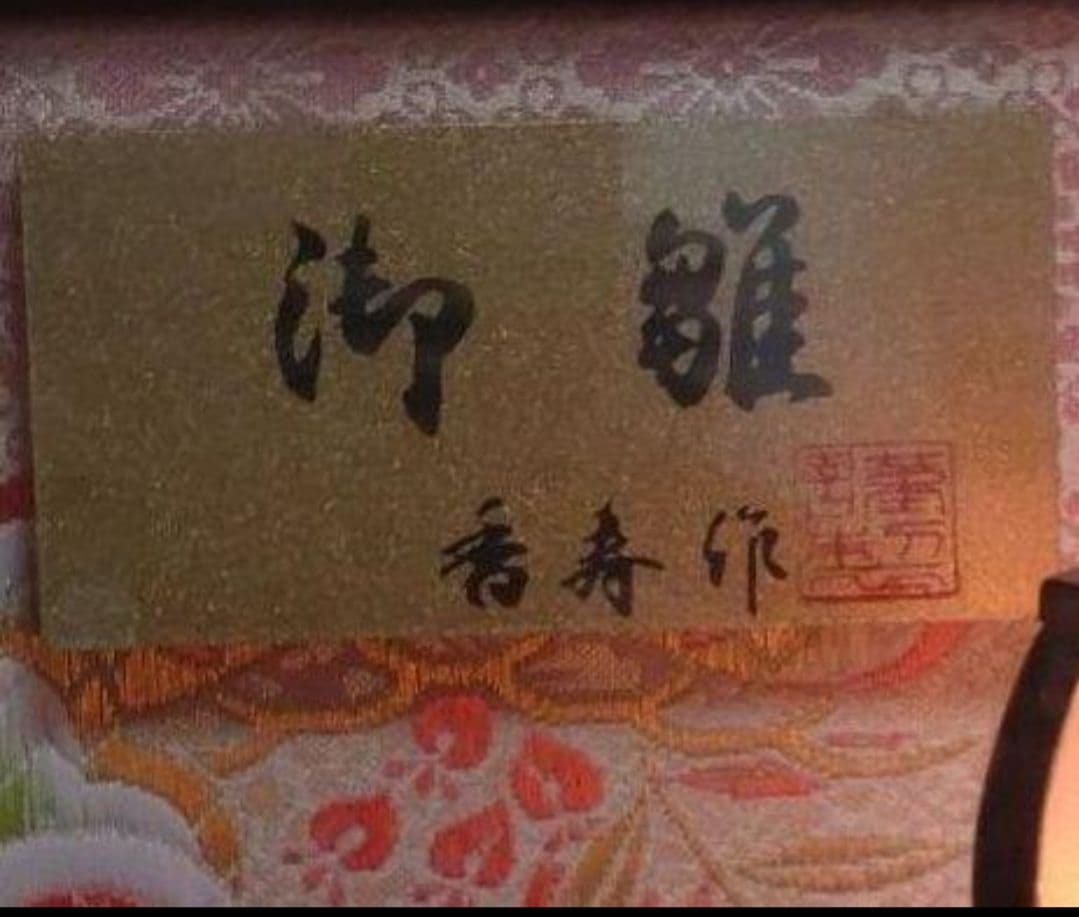 御雛
香寿作